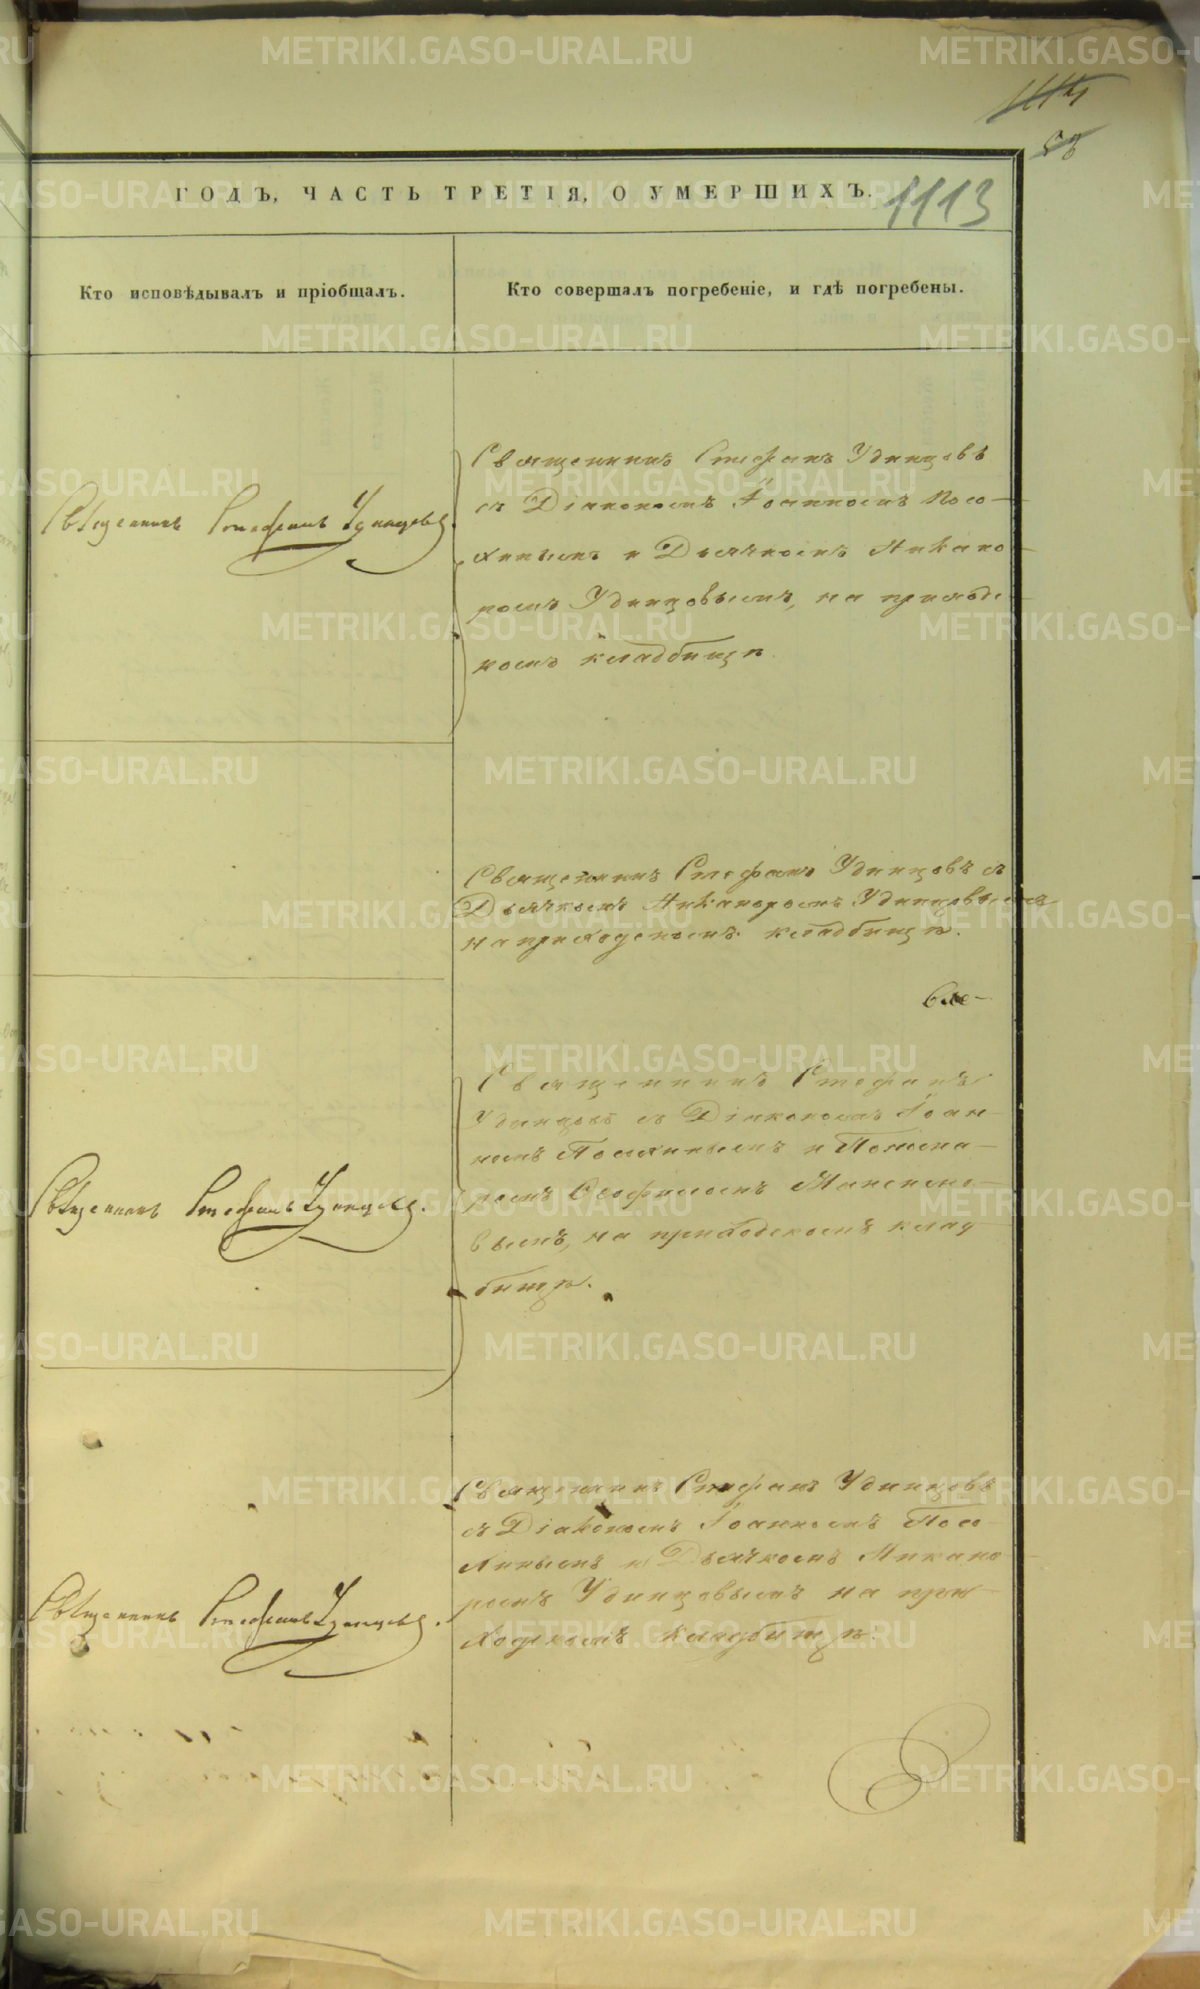 1114
58
ГОДЪ, ЧАСТЬ ТРЕТІЯ, О УМЕРШИХЪ.
1113
Кто исповѣдывалъ и пріобщалъ.
Кто совершалъ погребеніе, и гдѣ погребены.
Священникъ Стефанъ Удинцовъ
Священникъ Стефанъ Удинцовъ
съ Діакономъ Іоанномъ Посо-
хинымъ и Дьячкомъ Никано-
ромъ Удинцовымъ, на приход-
номъ кладбищѣ.
Священникъ Стефанъ Удинцовъ съ
Дьячкомъ Никаноромъ Удинцовымъ
на приходскомъ кладбищѣ.
Священникъ Стефанъ Удинцовъ.
Священникъ Стефанъ
Удинцовъ съ Діакономъ Іоан-
номъ Посохинымъ и Понома-
ремъ Ѳеофиломъ
вымъ, на приходскомъ клад-
бищѣ.
Священникъ Стефанъ Удинцовъ.
Священникъ Стефанъ Удинцовъ
съ Діакономъ Іоанномъ Посо-
хинымъ и Дьячкомъ Никано-
ромъ Удинцовымъ на при-
ходскомъ кладбищѣ.
METRIKI.GASO-URAL.RU